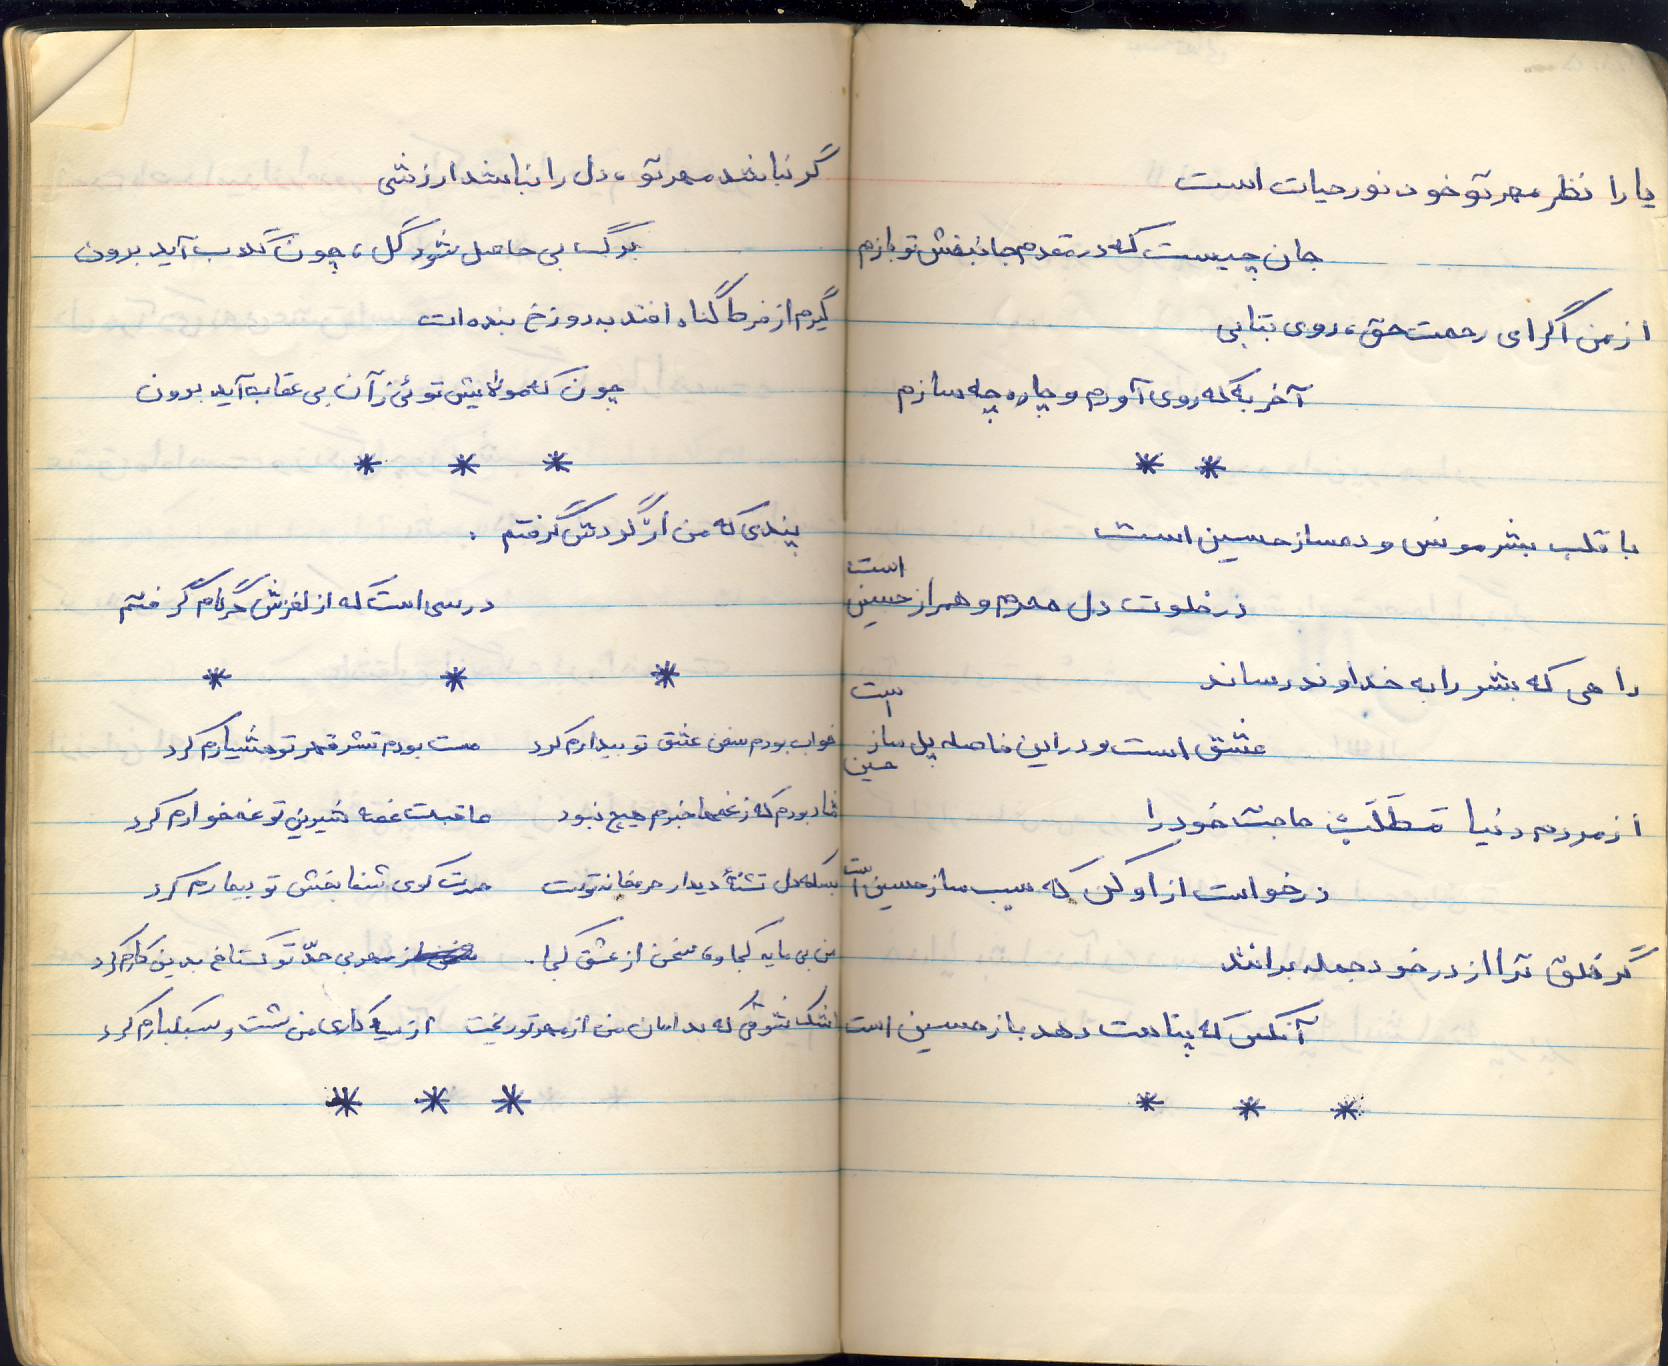 یا را نظر مهر تو خود نور حیات است
جان چیست که در مقدم جانبخش تو بازم
از من اگر ای رحمت حق، روی بتابی
آخر به که روی آورم و چاره چه سازم
* *
با قلب بشر مونس و دمساز حسین است
در خلوت دل محرم و همراز حسین است
راهی که بشر را به خداوند رساند
عشق است و در این فاصله پل ساز حسین است
از مردم دنیا مَطَلَب حاجت خود را
درخواست از او کن که سبب ساز حسین است
گر خلق ترا از در خود جمله برانند
آنکس که پناهت دهد باز حسین است
* * *
گر نباشد مهر تو، دل را نباشد ارزشی
برگ بی حاصل شود گل، چون گلاب آید برون
گیرم از فرط گناه افتد به دوزخ بنده ات
چون که مولایش توئی زآن بی عقاب آید برون
* * *
پندی که من از گردش گرفتم :
درسی است که از لغزش هر گام گرفتم
* * *
خواب بودم سخن عشق تو بیدارم کرد مست بودم تشر قهر تو هشیارم کرد
شاد بودم که ز غمها خبرم هیچ نبود عاقبت غصه شیرین تو غمخوارم کرد
بسکه دل تشنهٔ دیدار حرمخانه توست حسرت کوی شفا بخش تو بیمارم کرد
من بی مایه کجا و، سخن از عشق کجا. مهر بی حدّ تو گستاخ بدین کارم کرد
اشک شوقی که به دامان من از مهر تو ریخت از سیه کاری من شست و سبکبارم کرد
* * *